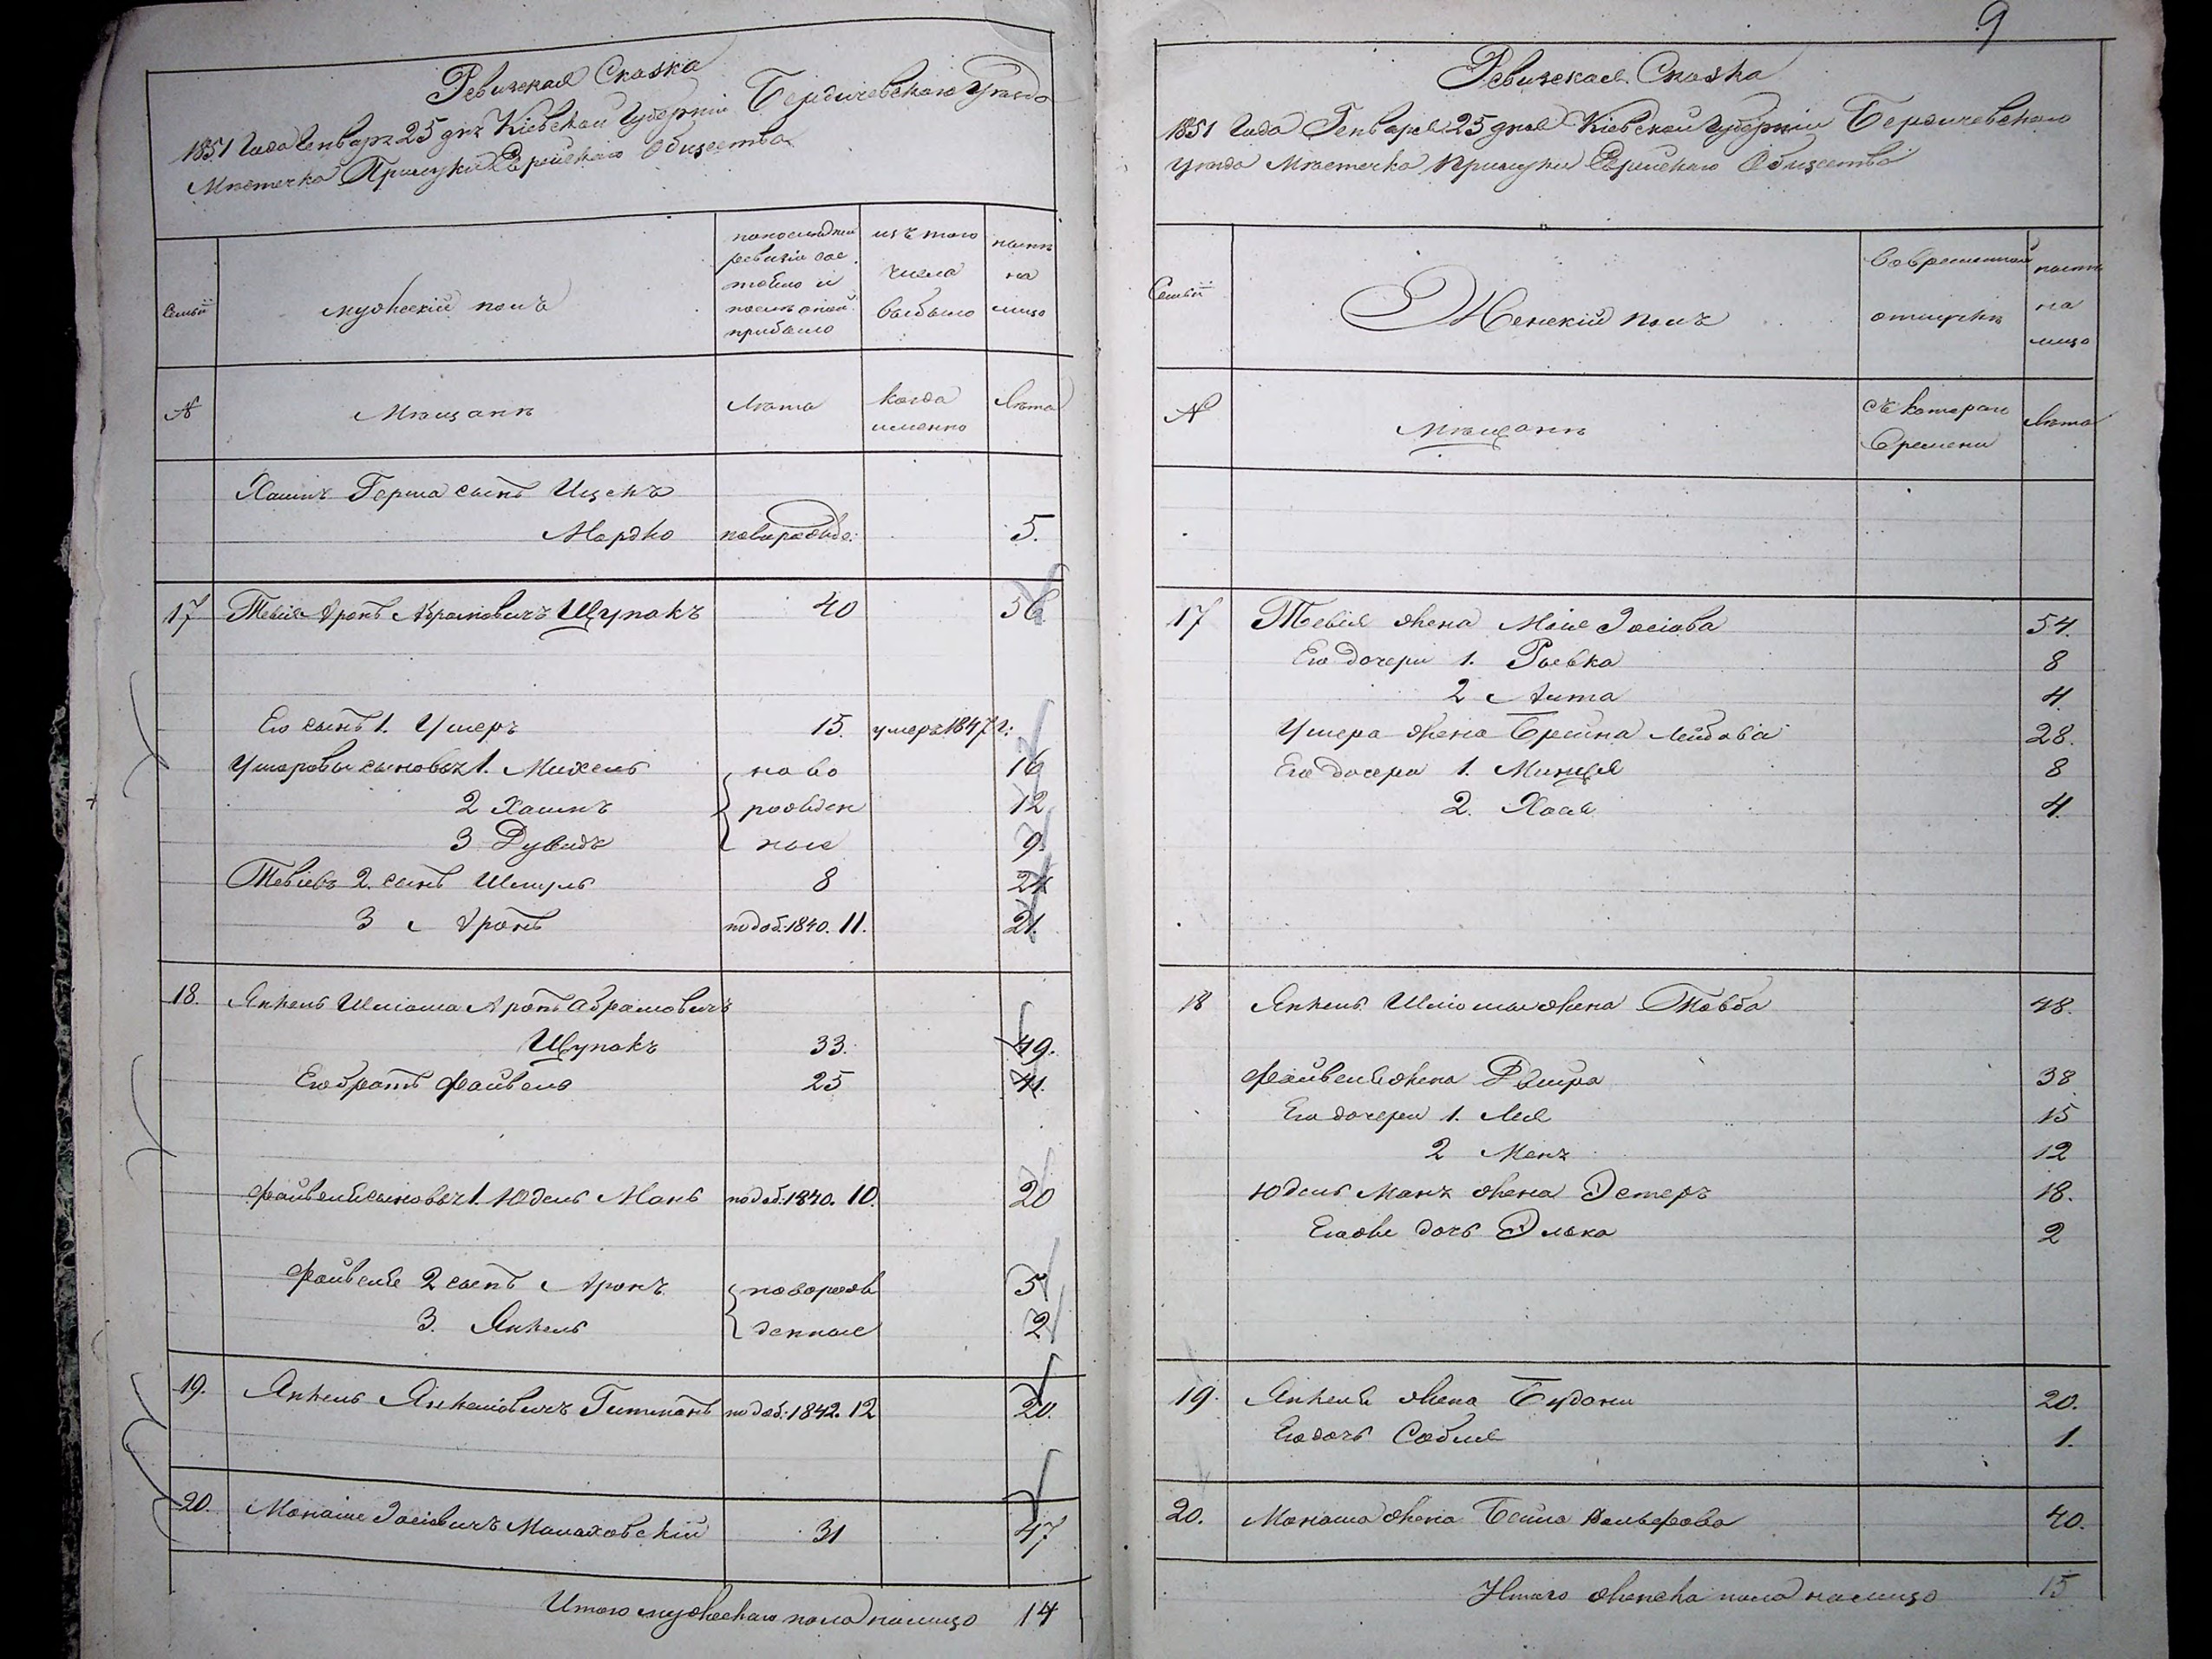 Ревизская Сказка
1851 Года Генваря 25 дня Кіевской Губерніи Бердичевскаго Уѣзда
Мѣстечка Прилуки Еврейскаго Общества
Семьи
мужескій полъ
по последней ревизіи состояло и после оной прибыло
изъ того числа выбыло
ныне на лицо
№
Мѣщанѣ
Лѣта
когда именно
Лѣта
Хаимъ Герша сынъ Ицекъ
Мордко новорожде: 5.
17 Тевія Аронъ Абрамовичъ Щупакъ 40 56
Его сынъ 1. Ушеръ 15. умеръ 1847 г:
Ушеровы сыновья 1. Михель ново 16
2 Хаимъ рожден 12
3 Дувидъ ные 9.
Тевіевъ 2. сынъ Шмуль 8 24
3 Аронъ по доб: 1840. 11. 21.
18. Янкель Шліома Аронъ Абрамовичъ
Щупакъ 33. 49.
Его братъ Файвель 25 41.
Файвеля сыновья 1. Юдель Манъ по доб. 1840. 10. 20
Файвеля 2 сынъ Аронъ новорож 5
3. Янкель денные 2
19. Янкель Янкеліовичъ Гитманъ по доб: 1842. 12 20.
20. Монаше Іосіовичъ Малаховскій 31 47
Итого мужескаго пола налицо 14
9
Ревизская Сказка
1851 Года Генваря 25 дня Кіевской Губерніи Бердичевскаго
Уѣзда Мѣстечка Прилуки Еврейскаго Общества
Семьи
Женскій полъ
Во временной отлучкѣ
ныне на лицо
№
Мѣщанѣ
съ котораго Времени
Лѣта
17 Тевія жена Іосіова 54.
Его дочери 1. Рывка 8
2 4.
Ушера жена Брейна Лейбова 28.
Его дочери 1. Минця 8
2. Хая 4.
18 Янкель Шліомы жена Товба 48.
Файвеля жена 38
Его дочери 1. Лея 15
2 Меня 12
Юдель Манъ жена Эстеръ 18.
Его же дочь Элька 2
19. Янкеля жена 20.
Его дочь Собля 1.
20. Монаша жена Бейла Вольфова 40.
Итого женска пола налицо 15